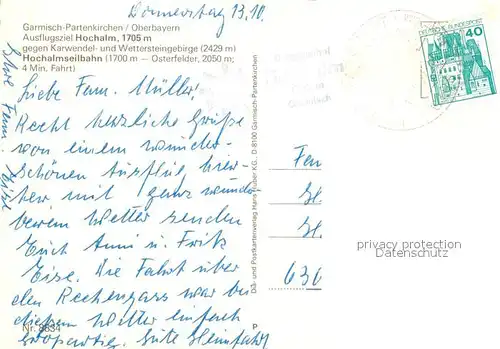 Donnerstag 13.10.
Garmisch-Partenkirchen / Oberbayern
Ausflugsziel Hochalm, 1705 m
gegen Karwendel- und Wettersteingebirge (2429 m)
Hochalmseilbahn (1700 m — Osterfelder, 2050 m;
4 Min. Fahrt)
Liebe Fam. Müller,
Recht herzliche Grüße
von einem wunder-
schönen Ausflug, hier-
her, mit ganz wunder
barem Wetter senden
Euch Anni u. Fritz
Eise. Die Fahrt über
den war bei
diesem Wetter einfach
großartig. Gute Heimfahrt
Nr. 8634
P
Da- und Postkartenverlag Hans Huber KG., D-8100 Garmisch-Partenkirchen
DEUTSCHE BUNDESPOST
40
Fam
630
privacy protection
Datenschutz